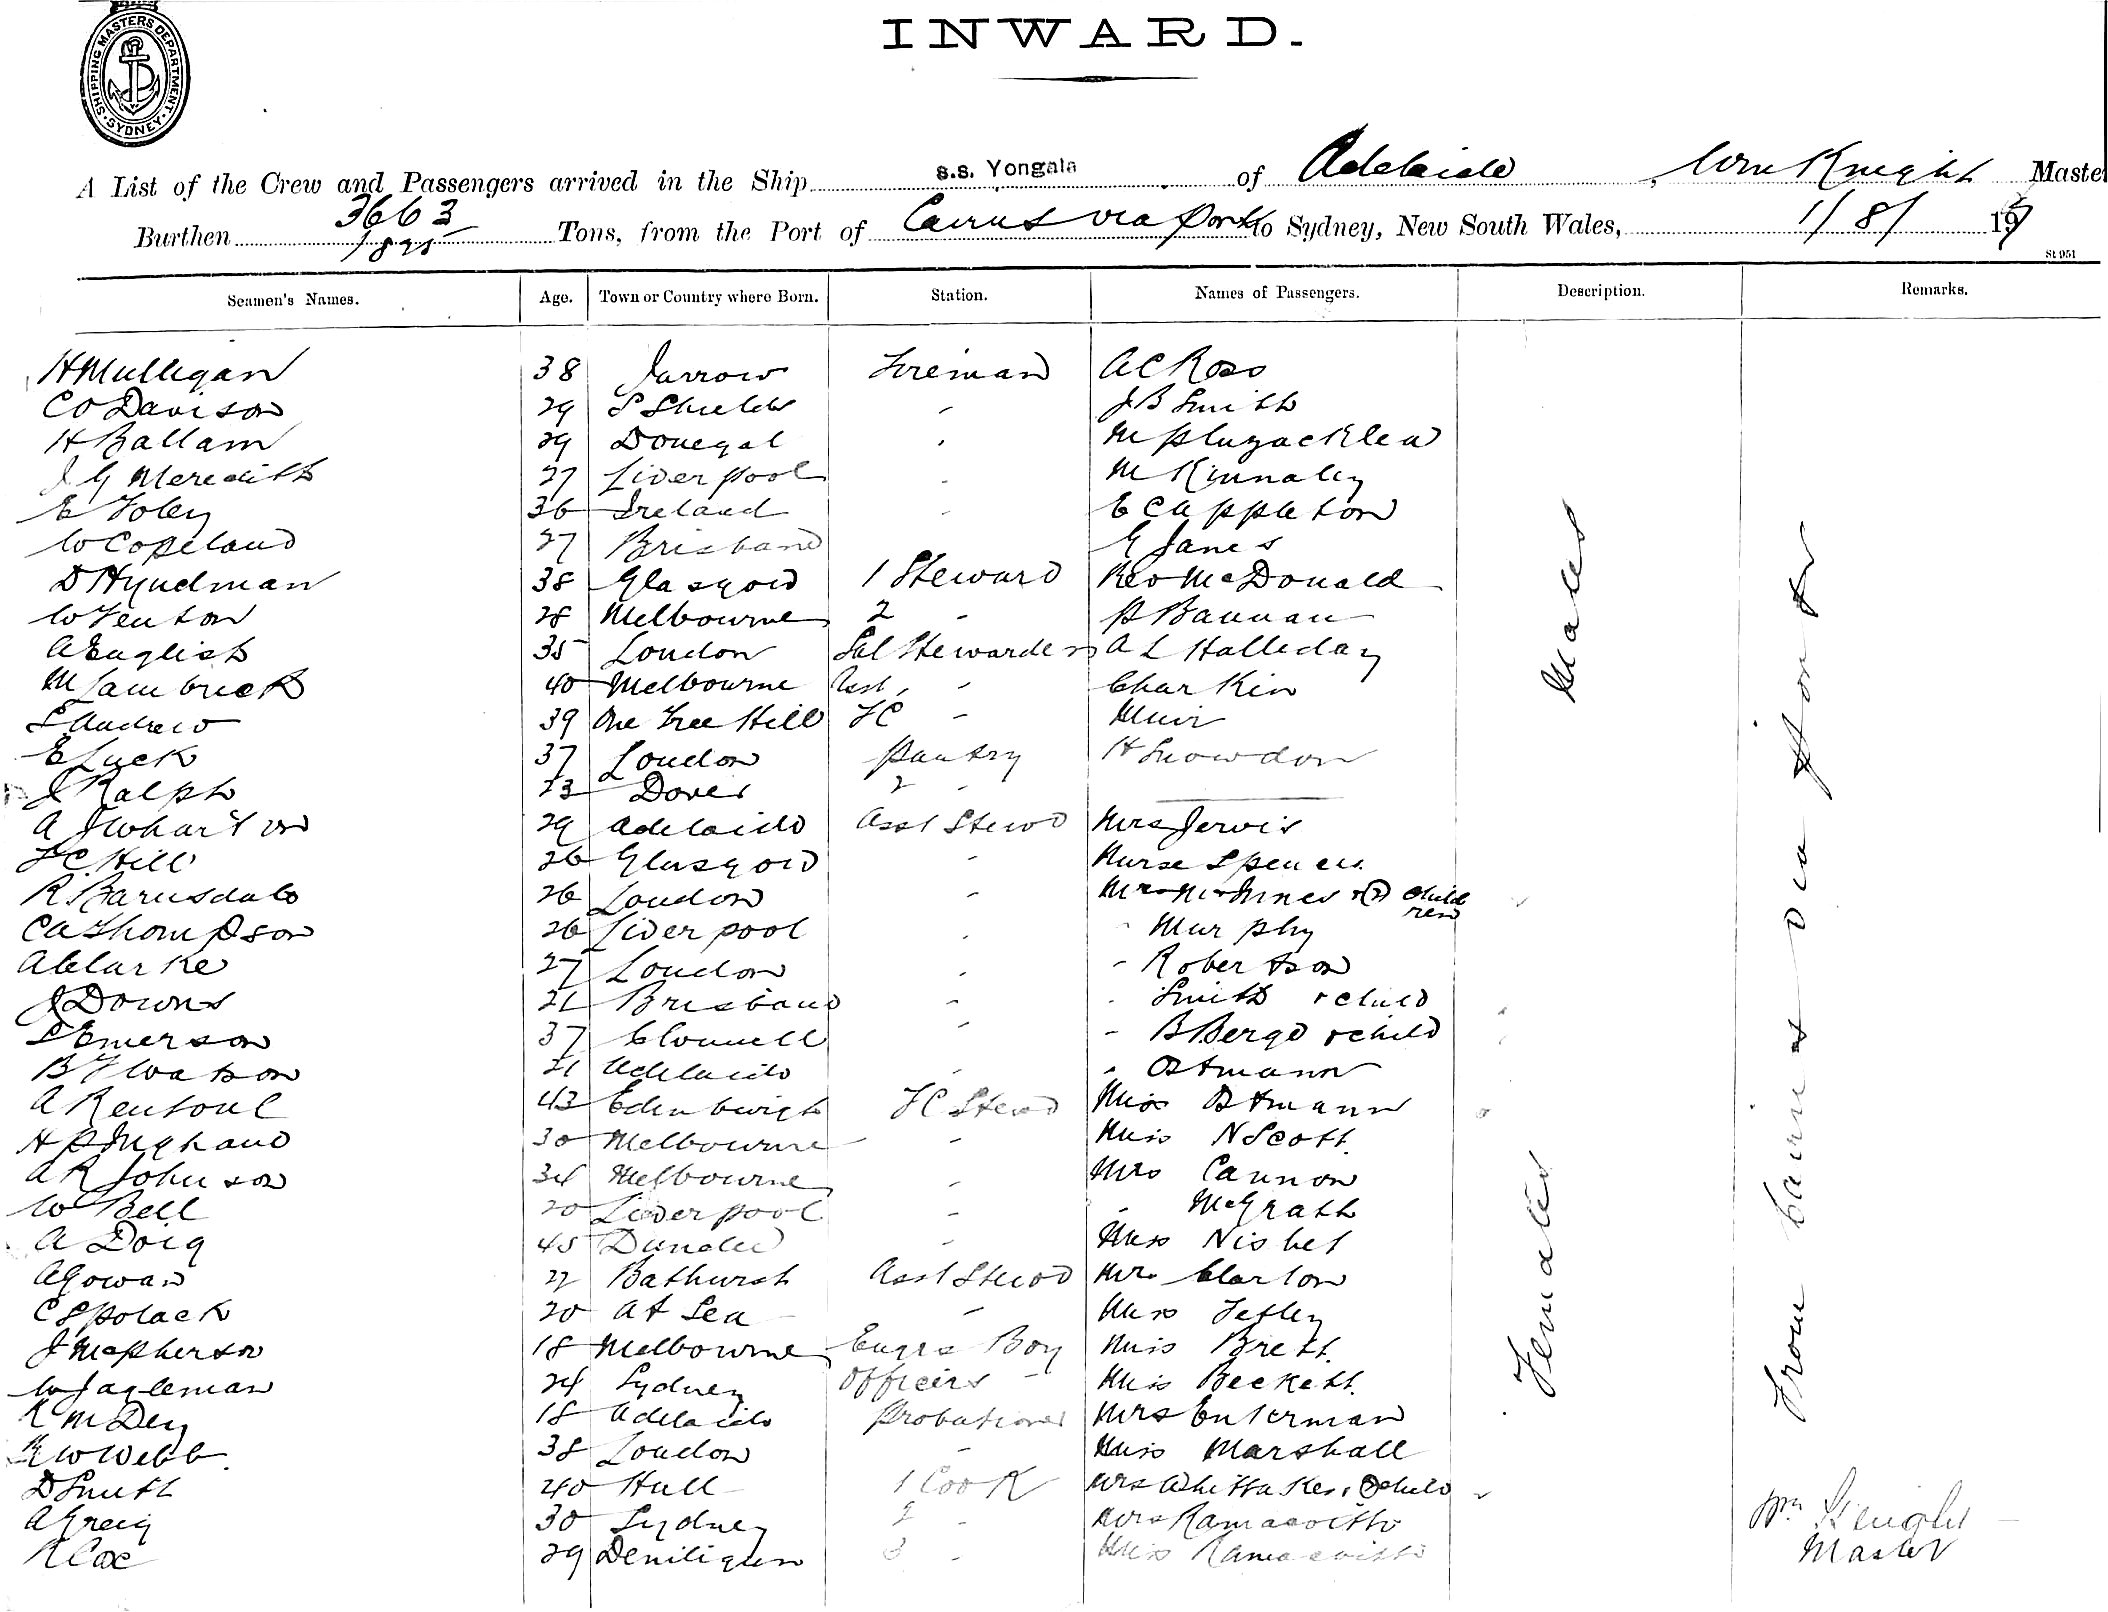 SHIPPING MASTERS DEPARTMENT
SYDNEY
INWARD.
A List of the Crew and Passengers arrived in the Ship s.s. Yongala of Adelaide, Wm Knight Master
Burthen 3663 / 1825 Tons, from the Port of Cairns via Ports to Sydney, New South Wales, 1/8/ 19
St 951
Seamen's Names. Age. Town or Country where Born. Station. Names of Passengers. Description. Remarks.
H Mulligan 38 Jarrow Fireman A C Ross
C O Davison 29 S Shields " J B Smith
H Ballam 29 Donegal " M
J G Meredith 27 Liverpool " M Kinnaley
E Foley 36 Ireland " E C Appleton
W Copeland 27 Brisbane G Janes
D Hyndman 38 Glasgow 1 Steward Rev McDonald
W Fenton 28 Melbourne 2 " P Bannan
A English 35 London Sal Stewardess A L Halliday
M Lambrick 40 Melbourne Asst " " Char Kin
L Andrew 39 One Tree Hill FC " Muir
E Luck 37 London Pantry H Snowdon
J Ralph 23 Dover 2 "
A J Wharton 29 Adelaide Asst Stewd Mrs Jervis
F C Hill 26 Glasgow " Nurse Spencer
R Barnsdale 26 London " Mrs McInnes & (2) children
C A Thompson 26 Liverpool " " Murphy
A Clarke 27 London " " Robertson
J Downs 21 Brisbane " " Smith & child
S Emerson 37 Clonmell " " B Berge & child
B F Watson 21 Adelaide " " Ostmann
A Rentoul 43 Edenburgh FC Stewd Miss Ostmann
H P Inghand 30 Melbourne " Miss N Scott
A R Johnson 34 Melbourne " Mrs Cannon
W Bell 20 Liverpool " " McGrath
A Doig 45 Dundee " Miss Nisbet
A Gowan 22 Bathurst Asst Stewd Mrs Clarton
C S Polack 20 At Sea " Miss Tetley
J McPherson 18 Melbourne Engrs Boy Miss Brett
W Jagleman 24 Sydney Officers " Miss Beckett
R M Dey 18 Adelaide Probationer Mrs Enterman
R W Webb 38 London " Miss Marshall
D Smith 40 Hull 1 Cook Mrs Whittaker & child
A Greig 30 Sydney 2 " Mrs Ramaciotti
R Coe 29 Deniliquin 3 " Miss Ramaciotti
Males
Females
From Cairns via Ports
Wm Knight
Master